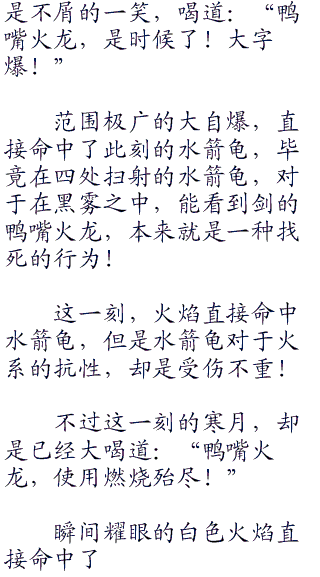 是不屑的一笑，喝道：“鸭
嘴火龙，是时候了！大字
爆！”
范围极广的大自爆，直
接命中了此刻的水箭龟，毕
竟在四处扫射的水箭龟，对
于在黑雾之中，能看到剑的
鸭嘴火龙，本来就是一种找
死的行为！
这一刻，火焰直接命中
水箭龟，但是水箭龟对于火
系的抗性，却是受伤不重！
不过这一刻的寒月，却
是已经大喝道：“鸭嘴火
龙，使用燃烧殆尽！”
瞬间耀眼的白色火焰直
接命中了